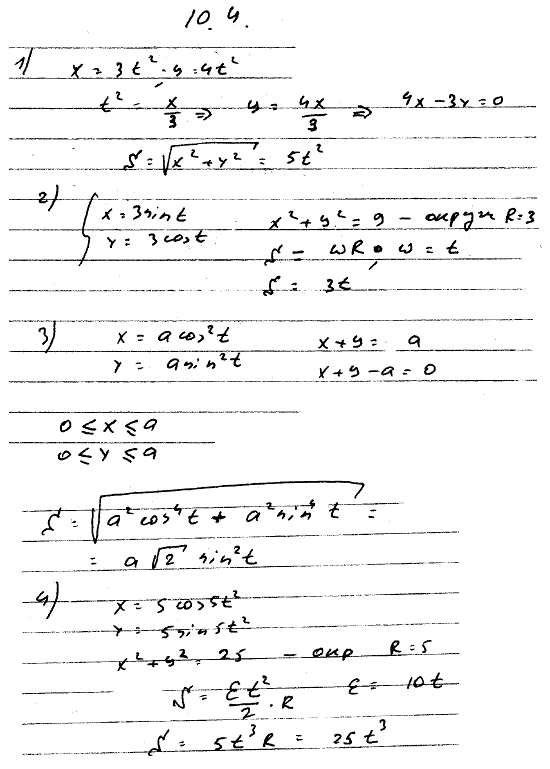 10.4.
1) x = 3t², y = 4t²
t² = x/3 ⇒ y = 4x/3 ⇒ 4x - 3y = 0
S = √(x² + y²) = 5t²
2) { x = 3 sin t
y = 3 cos t
x² + y² = 9 - окружн R = 3
S = ωR, ω = t
S = 3t
3) x = a cos² t x + y = a
y = a sin² t x + y - a = 0
0 ≤ x ≤ a
0 ≤ y ≤ a
S = √(a² cos⁴ t + a² sin⁴ t) =
= a √2 sin² t
4) x = 5 cos 5t²
y = 5 sin 5t²
x² + y² = 25 - окр R = 5
S = εt²/2 · R ε = 10t
S = 5t³ R = 25t³